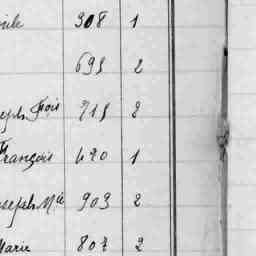 908 1
693 2
eph Fois 715 2
François 420 1
oseph Mie 903 2
Marie 807 2